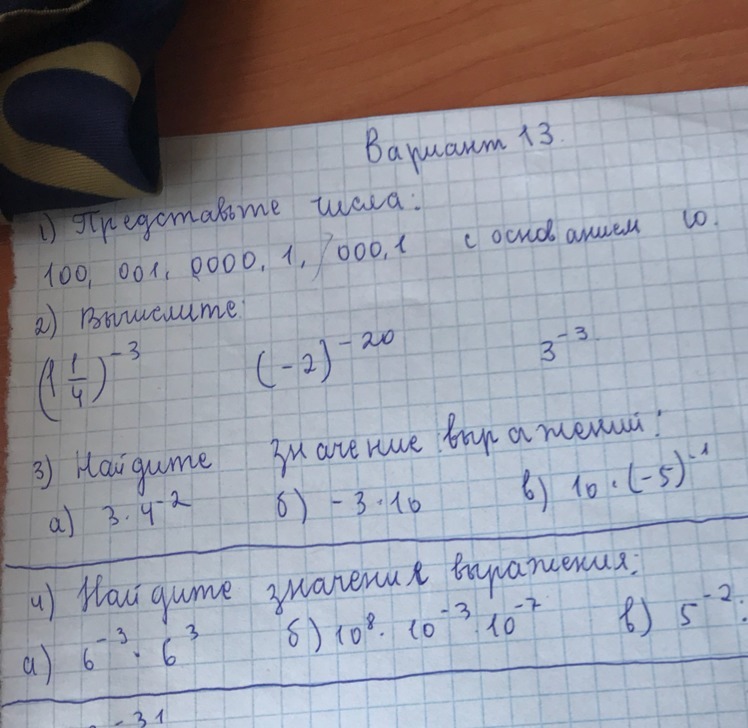 Вариант 13.
1) Представьте числа:
100, 001, 0000, 1, 000,1 с основанием 10.
2) Вычислите:
(1 1/4)^-3 (-2)^-20 3^-3
3) Найдите значение выражений:
а) 3·4^-2 б) -3·10 в) 10·(-5)^-1
4) Найдите значения выражения:
а) 6^-3 · 6^3 б) 10^8 · 10^-3 · 10^-7 в) 5^-2 :
-31